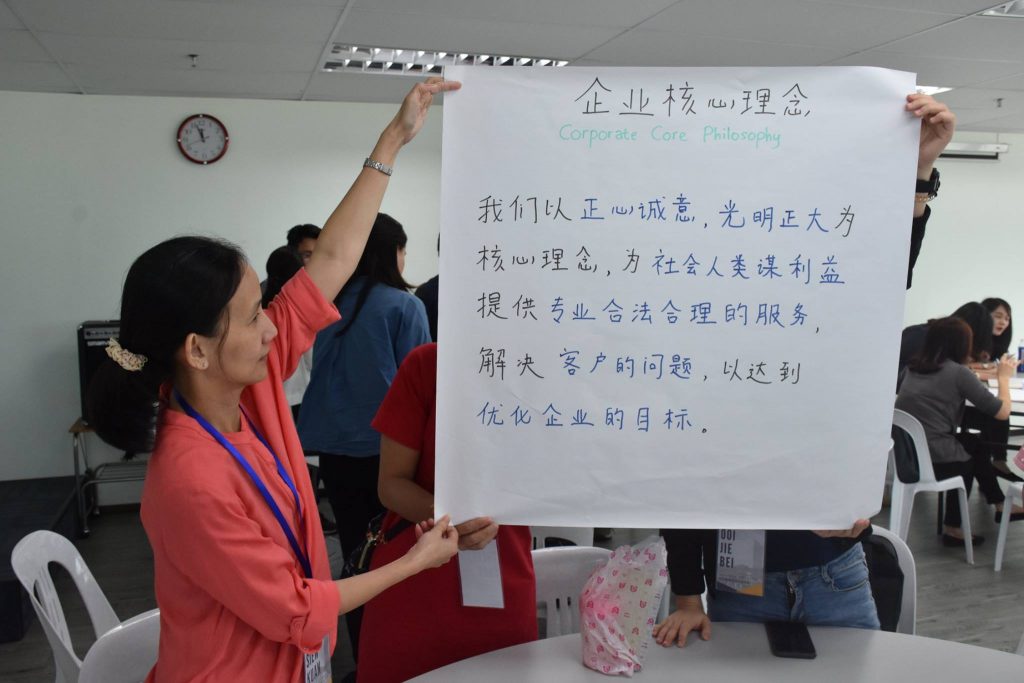 企业核心理念
Corporate Core Philosophy
我们以正心诚意,光明正大为
核心理念,为社会人类谋利益
提供专业合法合理的服务,
解决客户的问题,以达到
优化企业的目标。
OOI
JIE
BEI
SIEW
KUAN